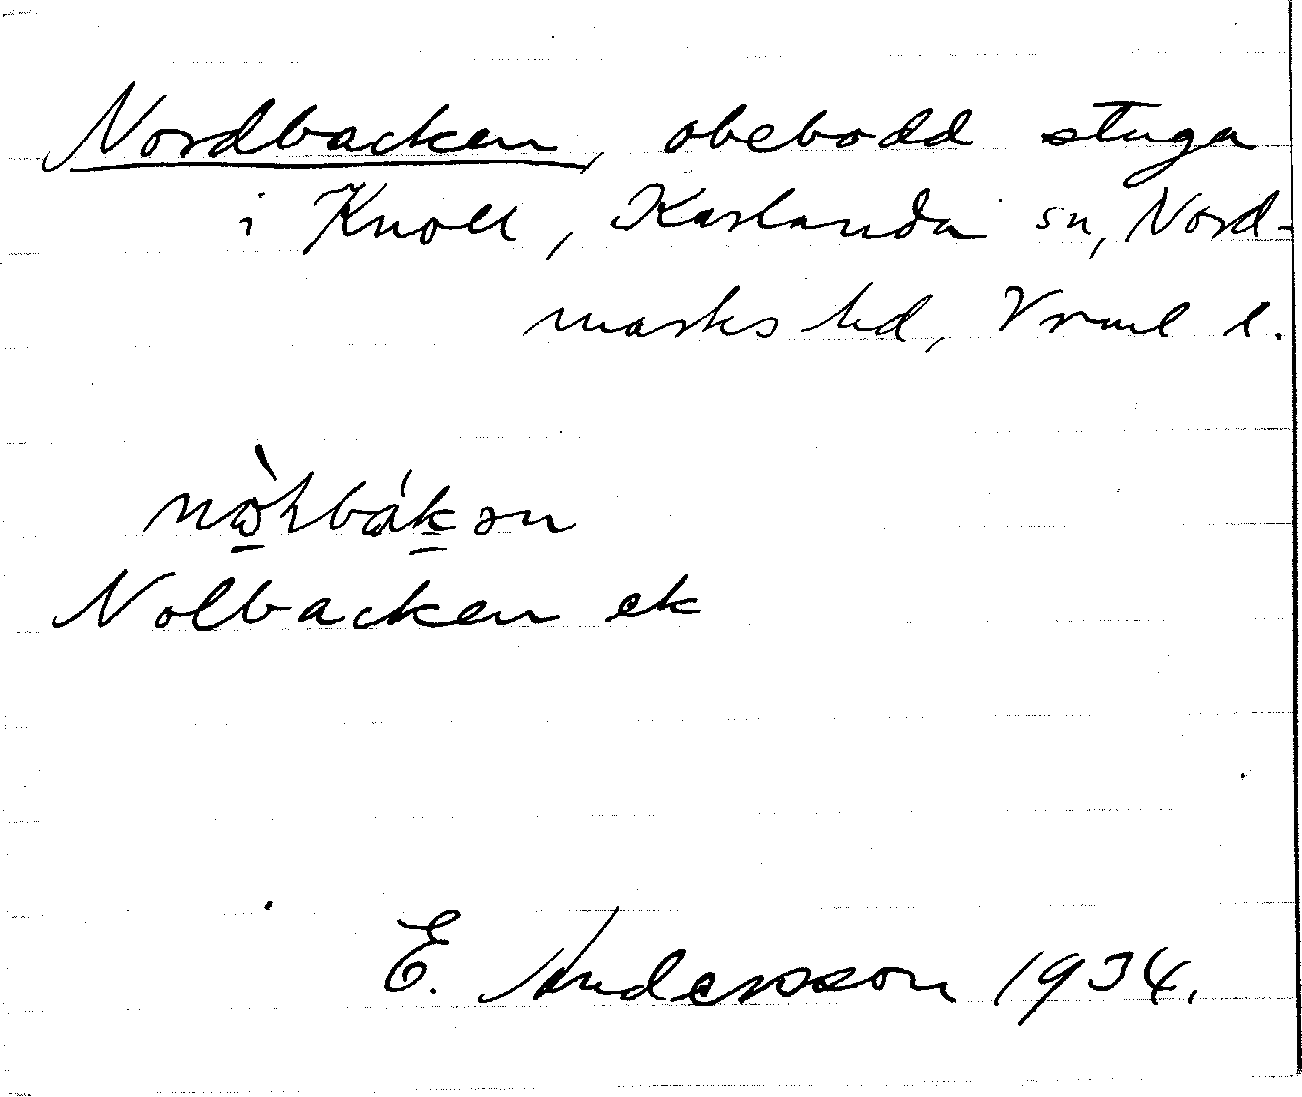 Nordbacken, obebodd stuga
i Knoll, Karlanda sn, Nord-
marks hd, Vrml l.
Nolbacken ek
E. Andersson 1934.